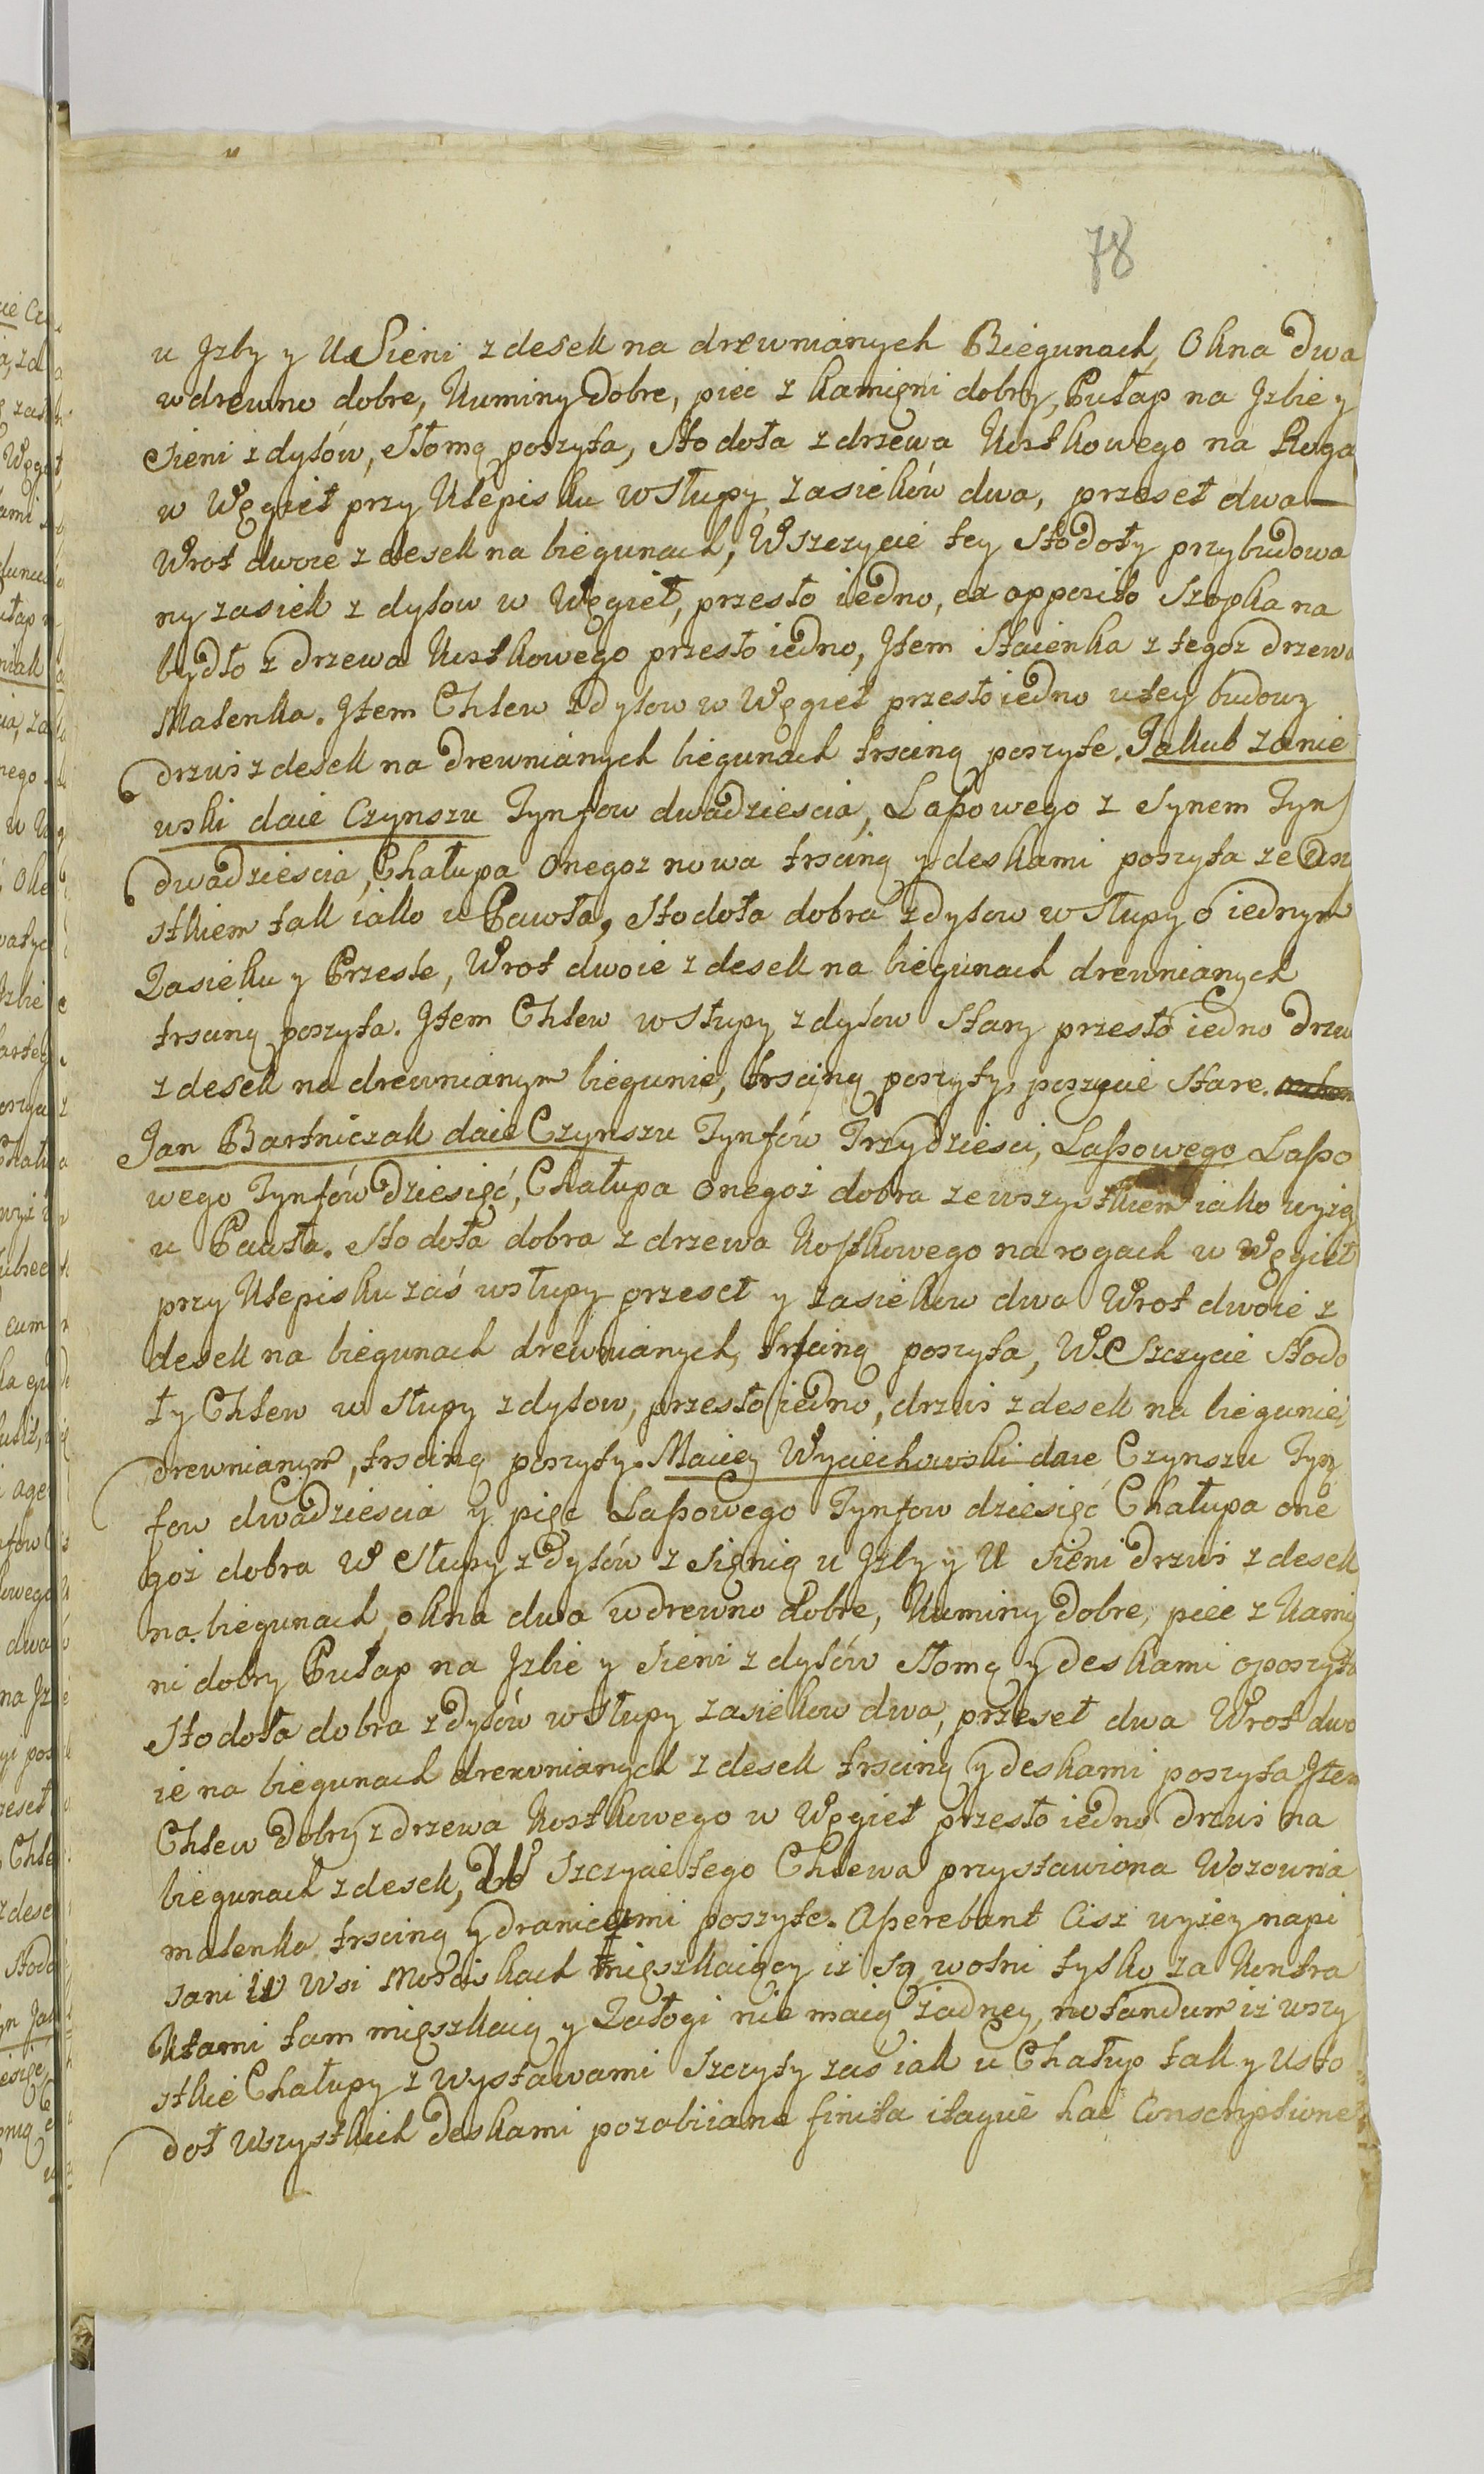 78
u Jzby y u Sieni z desek na drzewnianych Biegunach, Okna dwa
w drewno dobre, Kuminy dobre, piec z kamięni dobry, Pułap na Jzbie y
Sieni z dylów, słomą poszyta, Stodoła z drzewa Kostkowego na Roga
w Węgieł przy Klepisku w Słupy, zasieków dwa, przeseł dwa —
Wrot dwoie z desek na biegunach, W szczycie tey Stodoły przybudowa
ny zasiek z dylow w Węgieł, przesło iedno, ex opposito Szopka na
bydło z drzewa Kostkowego przesło iedno, Jtem Staienka z tegoz drzewa
Malenka. Jtem Chlew z dylow w Węgieł przesło iedno u tey budowy
drzwi z desek na drewnianych biegunach trsciną poszyte. Jakub Zanie
wski daie Czynszu Tynfow dwadziescia, Laþowego z Synem Tynf
dwadziescia, Chałupa onegoz nowa trsciną y deskami poszyta ze wsz
stkiem tak iako u Pawła, Stodoła dobra z dylow w Słupy o iednym
Zasieku y Przesle, Wrot dwoie z desek na biegunach drewnianych
trsciną poszyta. Jtem Chlew w Słupy z dylow Stary przesło iedno drzw
z desek na drewnianym biegunie, trsciną poszyty, poszycie Stare.
Jan Bartniczak daie Czynszu Tynfów Trzydziesci, Laþowego Laþo
wego Tynfów dziesięć, Chałupa onegoż dobra ze wszystkiem iako wyżey
u Pawła. Stodoła dobra z drzewa Kostkowego na rogach w Węgieł
przy Klepisku zaś w słupy przeseł y zasiekow dwa Wrot dwoie z
desek na biegunach drewnianych, trsciną poszyta, W Szczycie Stodo
ły Chlew w Słupy z dylow, przesło iedno, drzwi z desek na biegunie
drewnianym, trsciną poszyty. Maciey Wyciechowski daie Czynszu Tyn
fow dwadziescia y pięc Laþowego Tynfow dziesięć Chałupa one
goż dobra w Słupy z dylów z Sienią u Jzby y u Sieni drzwi z desek
na biegunach, okna dwa w drewno dobre, Kuminy dobre, piec z Kamię
ni dobry Pułap na Jzbie y Sieni z dylów słomą y deskami oposzyta
Stodoła dobra z dylów w Słupy zasiekow dwa, przeseł dwa Wrot dwo
ie na biegunach drewnianych z desek trsciną y deskami poszyta Jtem
Chlew dobry z drzewa Kostkowego w Węgieł przesło iedno drzwi na
biegunach z desek, W Szczycie tego Chlewa przystawiona Wozownia
malenka trsciną y dranicami poszyte. Aþerebant Cisz wyżey napi
sani w Wsi Mościskach mięszkaiący iż są wolni tylko za Kontra
ktami tam mięszkaią y Załogi nie maią żadney, notandum iż wszy
stkie Chałupy z wystawami Szczyty zas iak u Chałup tak y u Sto
doł wszystkich deskami pozabiiane finita itaque hac Conscriptione